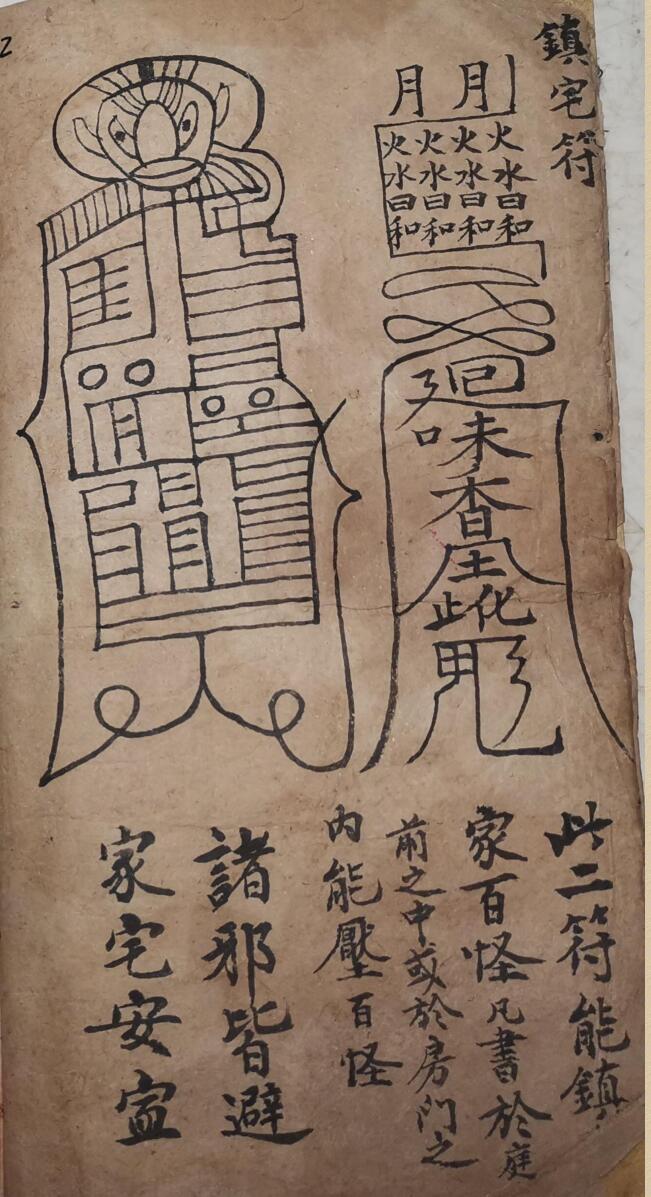 鎮宅符
月月
火火火火
水水水水
日日日日
和和和和
廻
味
香
此二符能鎮
家百怪凡書於庭
前之中或於房門之
内能壓百怪
諸邪皆避
家宅安寍